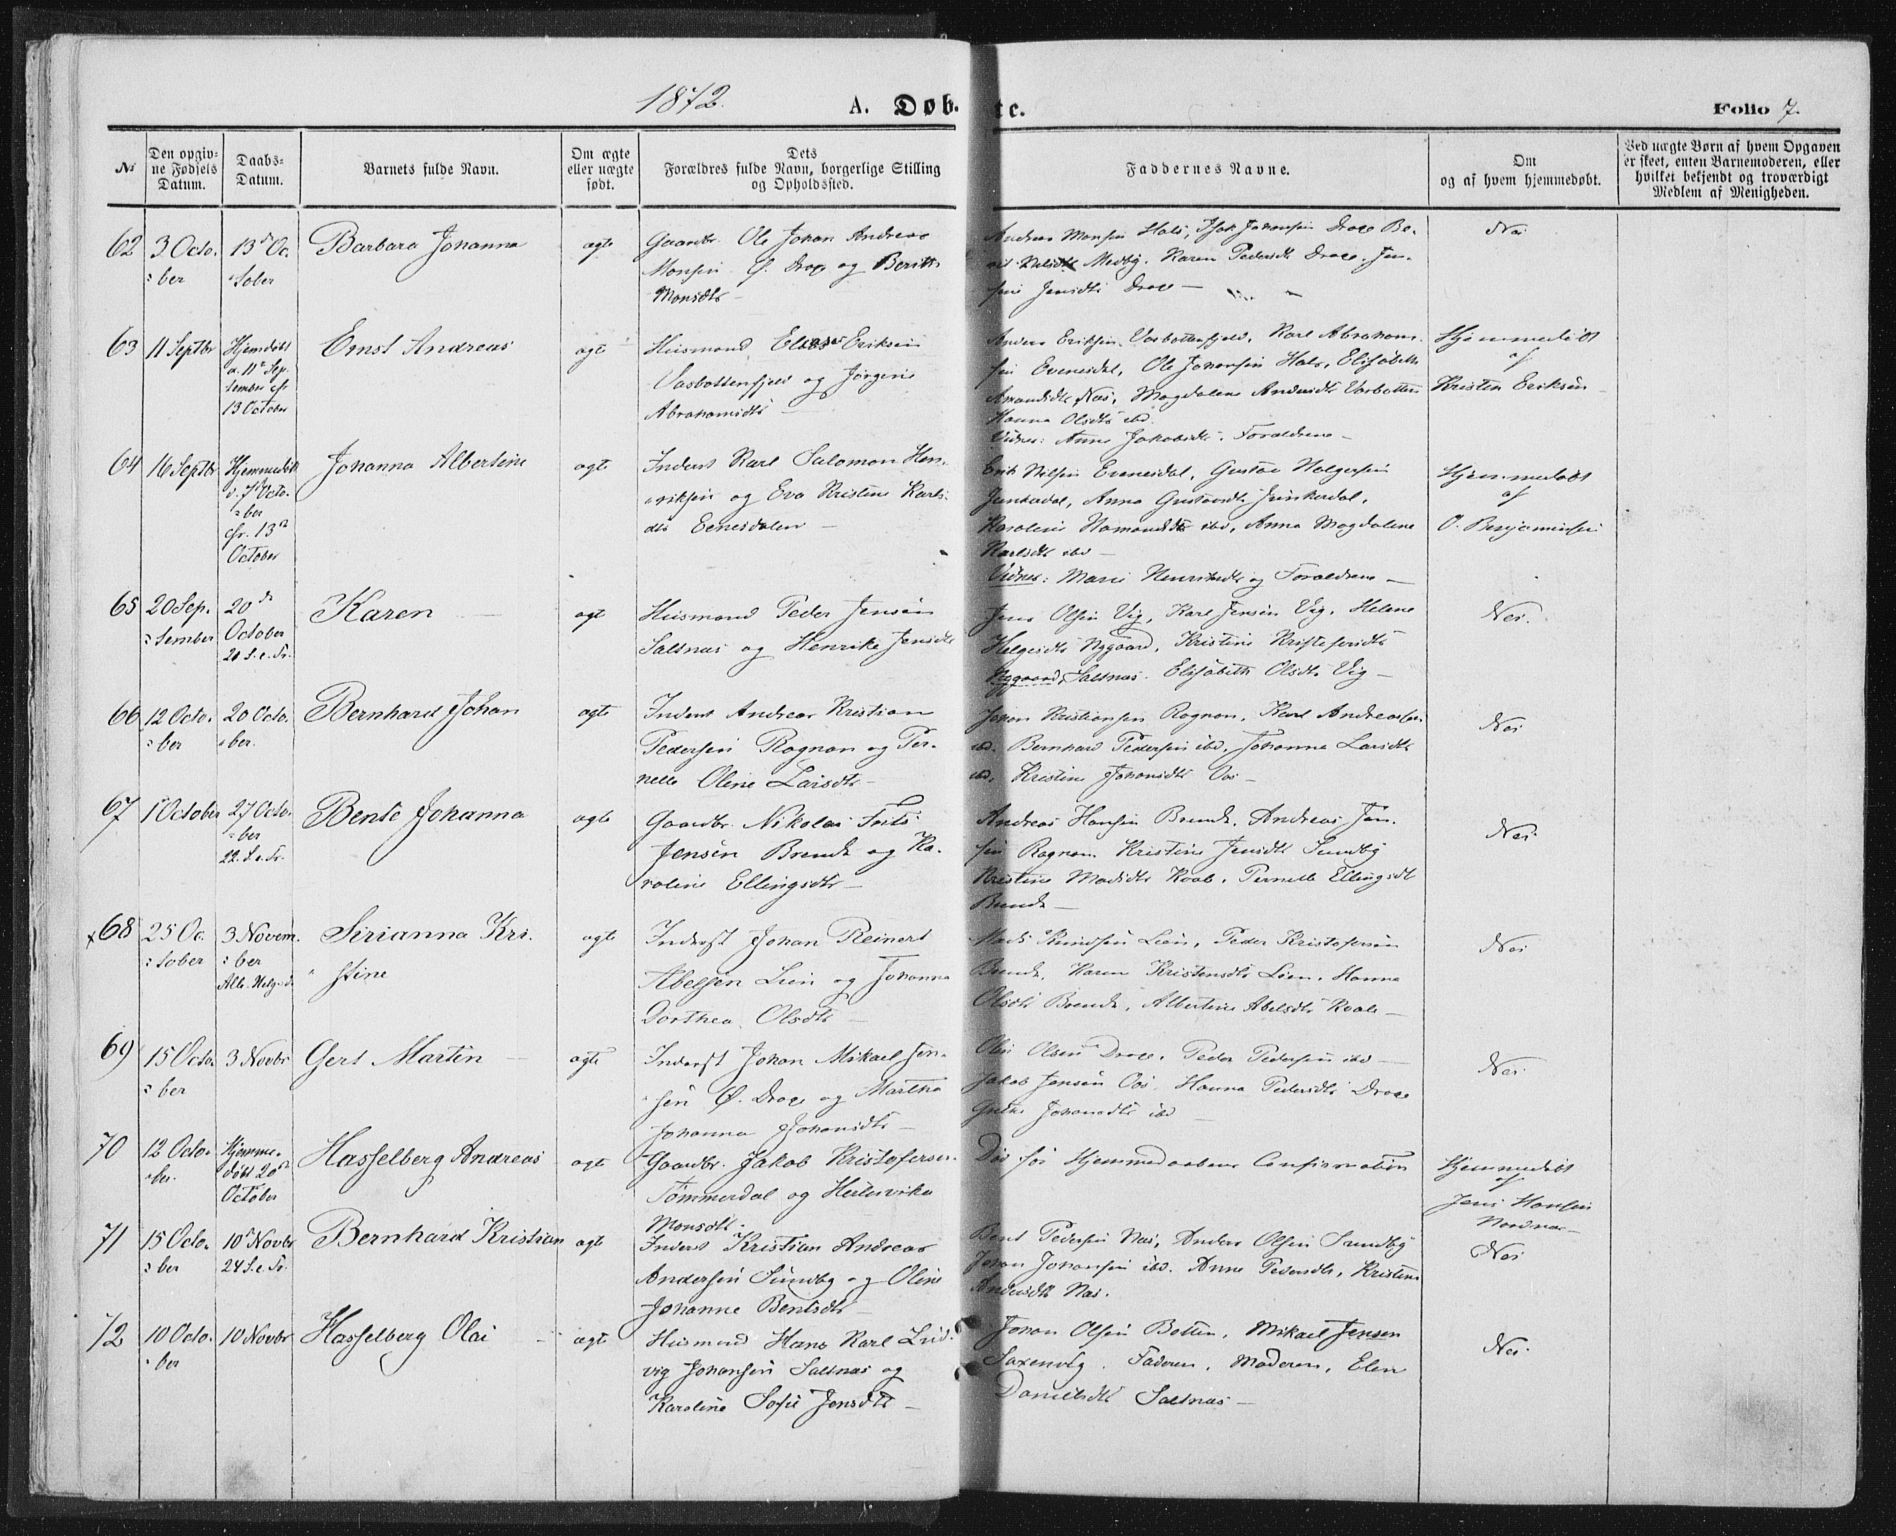 1872.
A. Døb-
te.
Folio 7.
No
Den opgiv-
ne Fødsels
Datum.
Daabs-
Datum.
Barnets fulde Navn.
Om ægte
eller uægte
født.
Dets
Forældres fulde Navn, borgerlige Stilling
og Opholdssted.
Faddernes Navne.
Om
og af hvem hjemmedøbt.
Ved uægte Børn af hvem Opgaven
er skeet, enten Barnemoderen, eller
hvilket bekjendt og troværdigt
Medlem af Menigheden.
62
3 Octo-
ber
13de Oc-
tober
Barbara Johanna
ægte
Gaardbr. Ole Johan Andreas
Monsen Ø. Drage og Berith
Monsdtr
Andreas Monsen Hals,
Medby. Karen Pedersdtr Drage. Jen-
Jensdtr Drage
Nei
63
11 Septbr
Hjemdøbt
d. 11te Sep-
tember
13 October
Ernst Andreas
ægte
Husmand Elias Eriksen
Vasbottenfjeld og Jørgine
Abrahamsdtr
Anders Eriksen Vasbottenfjeld, Karl Abraham-
sen Evenesdal, Ole Johansen Hals, Elisabeth
Amundsdtr Næs, Magdalena Andersdtr Vasbotten
Hanna Olsdtr ibd.
Vidner: Anne Jakobsdtr. Forældrene
Hjemmedøbt
af
Kristen Eriksen
64
16 Septbr
Hjemmedøbt
d. 7de Octo-
ber
fr. 13de
October
Johanna Albertine
ægte
Inderst Karl Salomon Hen-
riksen og Eva Kristine Karls-
dtr Evenesdalen
Erik Nilsen Evenesdal, Gustav Holgersen
Junkerdal, Anna Gustavsdtr Junkerdal,
Karoline Hamansdtr ibd, Anna Magdalena
Karlsdtr ibd
Vidner: Marie Henriksdtr og Forældrene
Hjemmedøbt
af
O. Benjaminsen
65
20 Sep-
tember
20de
October
20 S. e. Tr.
Karen
ægte
Husmand Peder Jensen
Saltnæs og Henrike Jensdtr
Jens Olsen Vig, Karl Jensen Vig, Helene
Helgesdtr Nygaard, Kristine Kristofersdtr
Nygaard, Saltnæs. Elisabeth Olsdtr Vig
Nei.
66
12 Octo-
ber
20 Octo-
ber.
Bernhard Johan
ægte
Inderst Andreas Kristian
Pedersen Rognan og Per-
nelle Oline Larsdtr
Johan Kristiansen Rognan, Karl Andreassen
ibd. Bernhard Pedersen ibd, Johanna Larsdtr
ibd, Kristine Johansdtr
Nei
67
1 October
27 Octo-
ber
22. S. e. Tr.
Bente Johanna
ægte
Gaardbr. Nikolai Frits
Jensen Brende og Ka-
roline Ellingsdtr
Andreas Hansen Brende, Andreas Jen-
sen Rognan Kristine Jensdtr Sundby
Kristine Madsdtr Kvale, Pernelle Ellingsdtr
Brende
Nei.
x 68
25 Oc-
tober
3 Novem-
ber
Alle Helgesd
Sirianna Kri-
stine
ægte
Inderst Johan Reinert
Abelsen Lien og Johanna
Dorthea Olsdtr
Mads Knudsen Lien, Peder Kristofersen
Brende, Karen Kristensdtr Lien, Hanna
Olsdtr Brende, Albertine Abelsdtr Kvale
Nei
69
15 Octo-
ber
3 Novbr
Gert Martin
ægte
Inderst Johan Mikael Jen-
sen Ø. Drage og Martha
Johanna Johansdtr
Ole Olsen Drage, Peder Pedersen ibd
Jakob Jensen, Hanna Pedersdtr Drage
Johansdtr ibd
Nei.
70
12 Octo-
ber.
Hjemme-
døbt 20de
October
Hasselberg Andreas
ægte
Gaardbr. Jakob Kristofersen
Tømmerdal og Hedevika
Monsdtr.
Død før Hjemmedaabens Confirmation
Hjemmedøbt
af
Jens Hansen
Nordnæs
71
15 Octo-
ber
10de Novbr
24 S. e. Tr.
Bernhard Kristian
ægte
Inderst Kristian Andreas
Andersen Sundby og Oline
Johanne Bentsdtr
Bent Pedersen Næs, Anders Olsen Sundby
Johan Johansen ibd. Anne Pedersdtr, Kristine
Andersdtr Næs.
Nei
72
10 Octo-
ber
10 Novbr
Hasselberg Olai
ægte
Husmand Hans Karl Lud-
vig Johansen Saltnæs og
Karoline Sofie Jensdtr
Johan Olsen Botten, Mikael Jensen
Saxenvig. Faderen, Moderen, Elen
Danielsdtr Saltnæs
Nei.